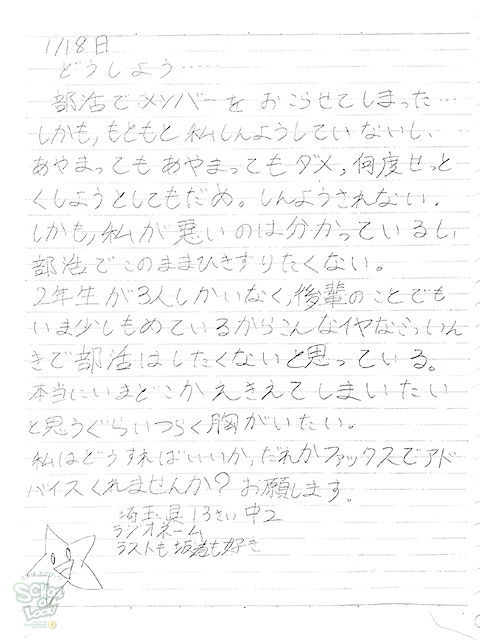 1/18日
どうしよう……
部活でメンバーをおこらせてしまった…
しかも,もともと私しんようしていないし、
あやまってもあやまってもダメ,何度せっと
くしようとしてもだめ。しんようされない。
しかも,私が悪いのは分かっているし、
部活でこのままひきずりたくない。
2年生が3人しかいなく,後輩のことでも
いま少しもめているからこんなイヤなふいん
きで部活はしたくないと思っている。
本当にいまどこかへきえてしまいたい
と思うぐらいつらく胸がいたい。
私はどうすればいいか,だれかファックスでアド
バイスくれませんか?お願します。
埼玉県13さい中2
ラジオネーム
ラストも坂道も好き
SCHOOL OF LOCK!